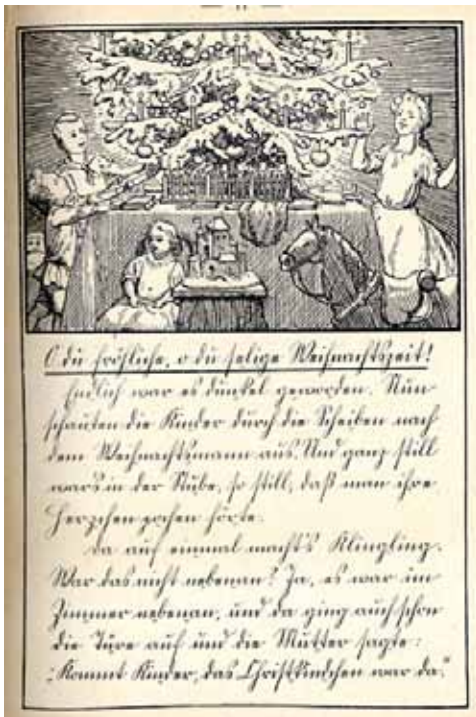 O du fröhliche, o du selige Weihnachtszeit!
Endlich war es dunkel geworden. Nun
schauten die Kinder durch die Scheiben nach
dem Weihnachtsmann aus. Und ganz still
wars in der Stube, so still, daß man ihre
Herzchen pochen hörte.
Da auf einmal machts Klingling.
War das nicht nebenan? Ja, es war im
Zimmer nebenan, und da ging auch schon
die Türe auf und die Mutter sagte:
„Kommt Kinder, das Christkindchen war da.“